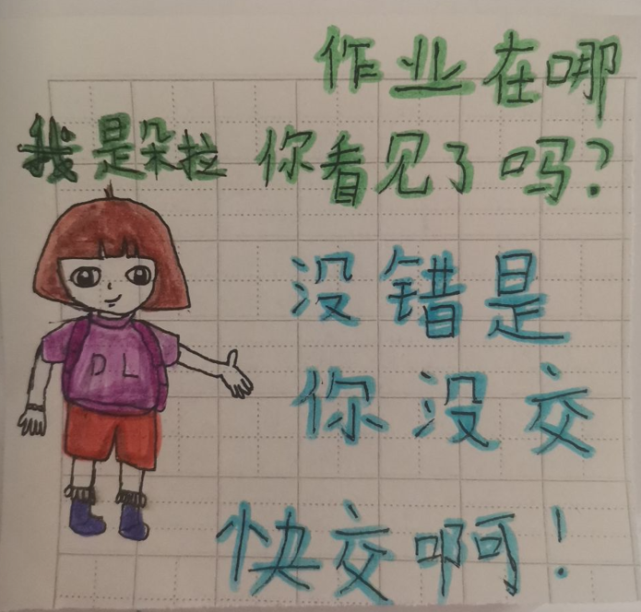 作业在哪
我是朵拉 你看见了吗?
没错是
你没交
快交啊!
DL